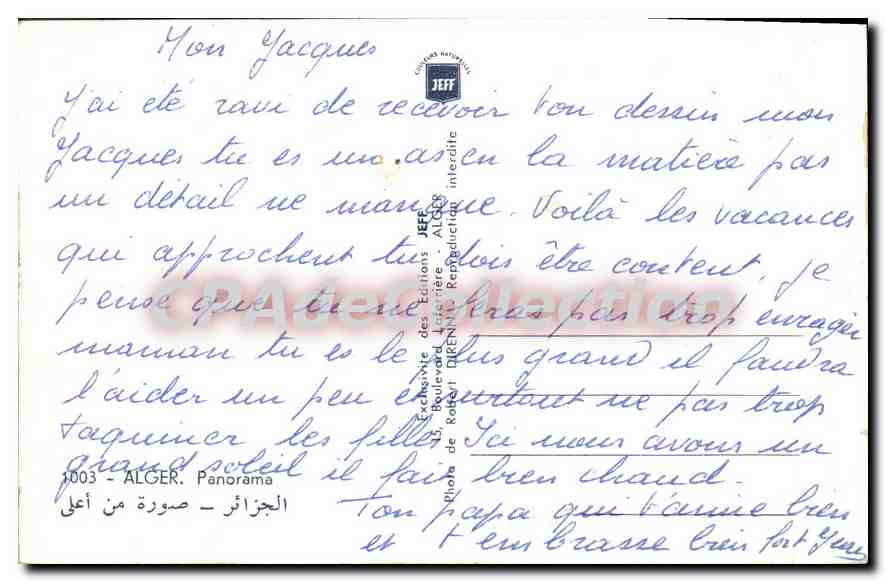 Mon Jacques
COULEURS NATURELLES
JEFF
J'ai été ravi de recevoir ton dessin mon
Jacques tu es un as en la matière pas
un détail ne manque. Voilà les vacances
qui approchent tu dois être content. Je
pense que tu ne feras pas trop enrager
maman tu es le plus grand il faudra
l'aider un peu et surtout ne pas trop
taquiner les filles Ici nous avons un
grand soleil il fait bien chaud.
Ton papa qui t'aime bien
et t'embrasse bien fort
Exclusivité des Editions JEFF
15, Boulevard Laferrière - ALGER
Photo de Robert DIRENNE, Reproduction interdite
1003 - ALGER. Panorama
الجزائر - صورة من أعلى
CPAdeCollection